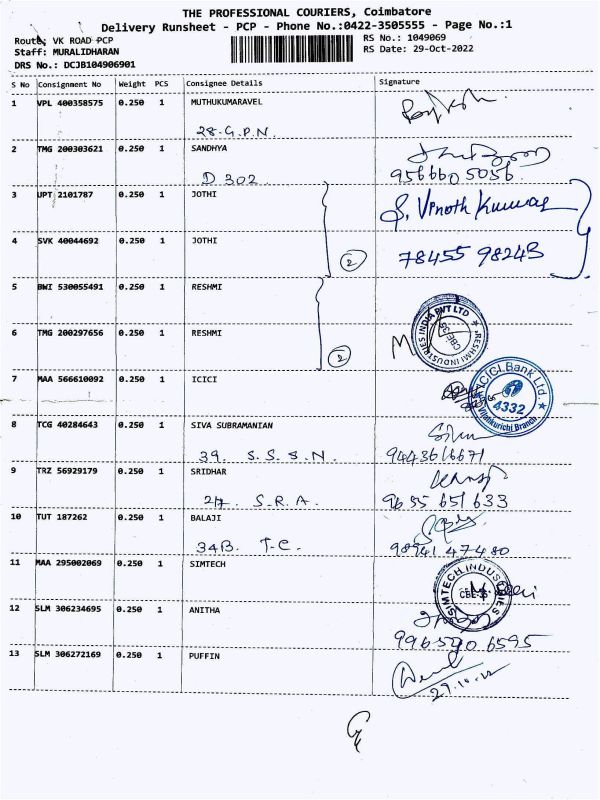 THE PROFESSIONAL COURIERS, Coimbatore
Delivery Runsheet - PCP - Phone No.:0422-3505555 - Page No.:1
Route: VK ROAD PCP
RS No.: 1049069
Staff: MURALIDHARAN
RS Date: 29-Oct-2022
DRS No.: DCJB104906901
S No Consignment No Weight PCS Consignee Details Signature
1 VPL 400358575 0.250 1 MUTHUKUMARAVEL
28-G.P.N.
2 TMG 200303621 0.250 1 SANDHYA
D 302 956660 5056
3 JPT 2101787 0.250 1 JOTHI S. Vinoth Kumar
4 SVK 40044692 0.250 1 JOTHI 78455 98243
2
5 BWI 530055491 0.250 1 RESHMI
RESHMI INDUSTRIES INDIA PVT LTD
CBE-35
6 TMG 200297656 0.250 1 RESHMI
2
7 MAA 566610092 0.250 1 ICICI
ICICI Bank Ltd.
4332
Branch
8 TCG 40284643 0.250 1 SIVA SUBRAMANIAN
39. S.S.S.N. 9443616671
9 TRZ 56929179 0.250 1 SRIDHAR
S.R.A. 9655 651 633
10 TUT 187262 0.250 1 BALAJI
34B. T-C. 98941 47480
11 MAA 295002069 0.250 1 SIMTECH
SIMTECH INDUSTRIES
CBE-35
12 SLM 306234695 0.250 1 ANITHA
996590 6595
13 SLM 306272169 0.250 1 PUFFIN
29.10.22